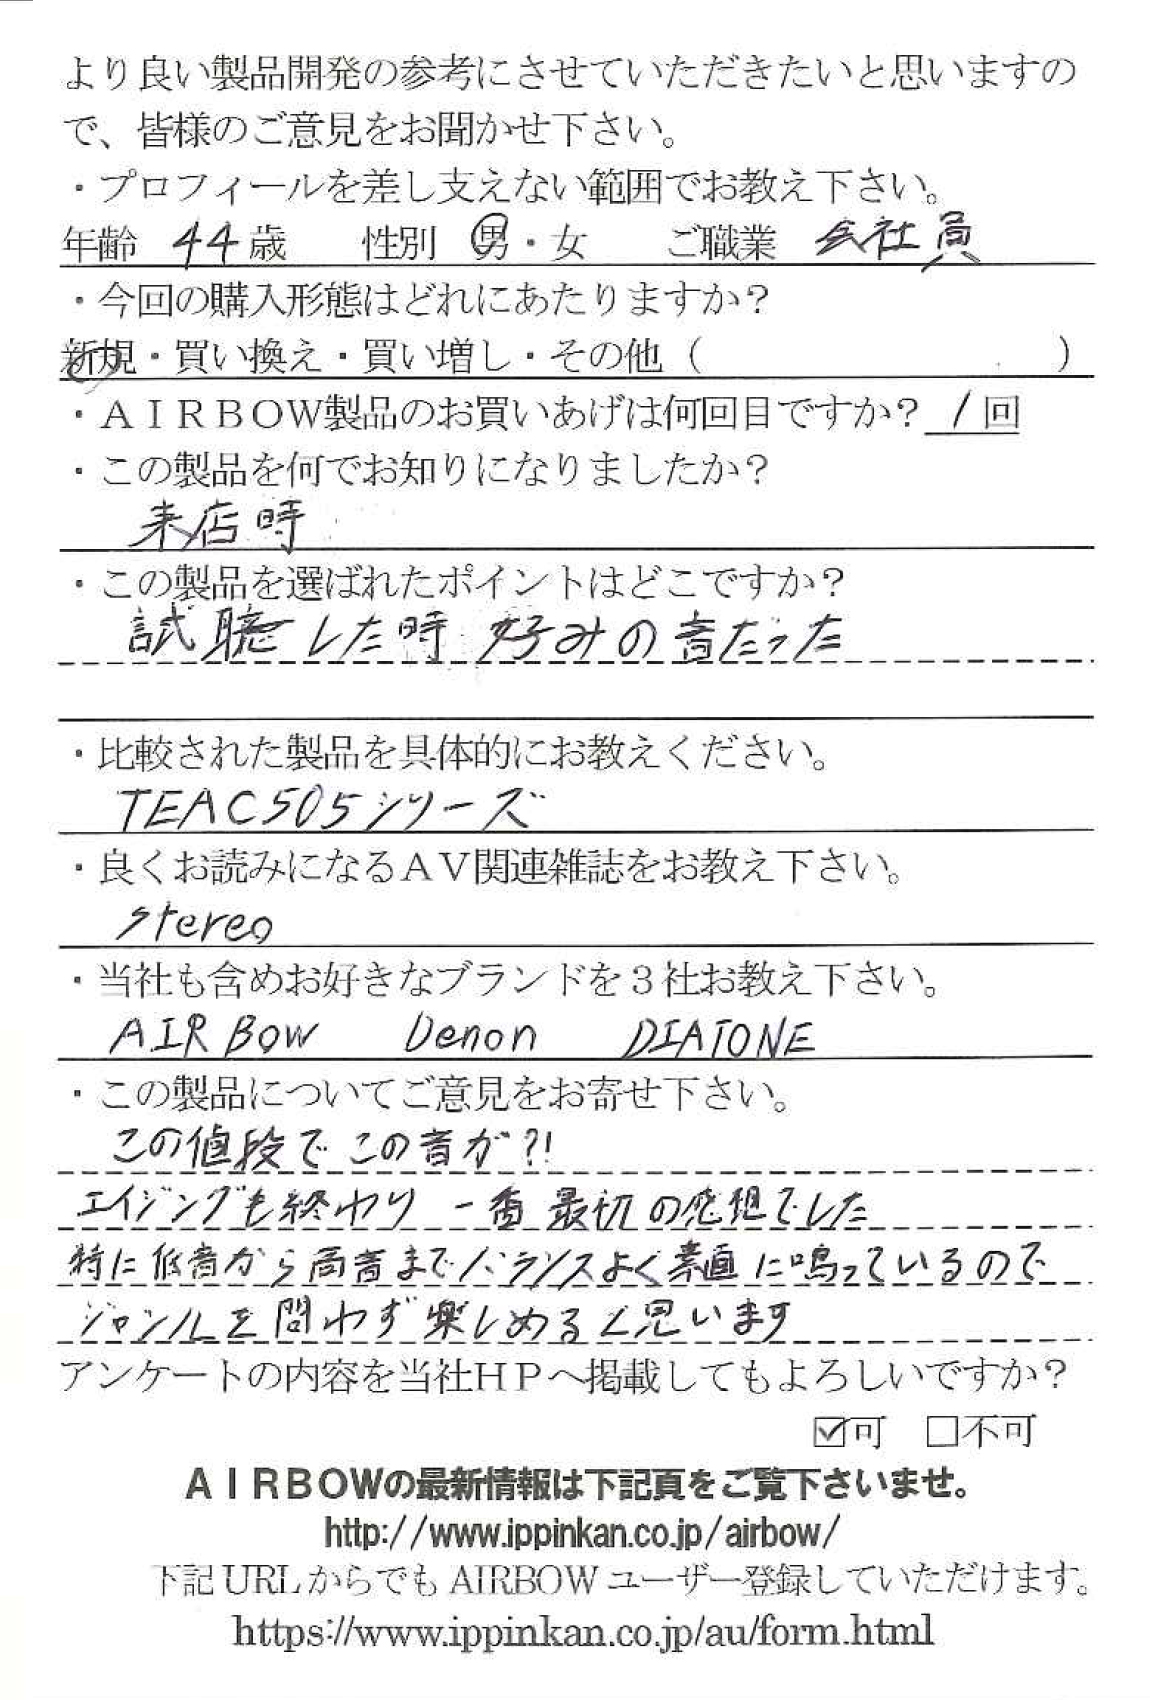 より良い製品開発の参考にさせていただきたいと思いますの
で、皆様のご意見をお聞かせ下さい。
・プロフィールを差し支えない範囲でお教え下さい。
年齢 44歳 性別 男・女 ご職業 会社員
・今回の購入形態はどれにあたりますか？
新規・買い換え・買い増し・その他（ ）
・ＡＩＲＢＯＷ製品のお買いあげは何回目ですか？ 1回
・この製品を何でお知りになりましたか？
来店時
・この製品を選ばれたポイントはどこですか？
試聴した時 好みの音だった
・比較された製品を具体的にお教えください。
TEAC505シリーズ
・良くお読みになるＡＶ関連雑誌をお教え下さい。
stereo
・当社も含めお好きなブランドを３社お教え下さい。
AIRBOW Denon DIATONE
・この製品についてご意見をお寄せ下さい。
この値段でこの音が?!
エイジングも終わり 一番最初の感想でした
特に低音から高音までバランスよく素直に鳴っているので
ジャンルを問わず楽しめると思います
アンケートの内容を当社ＨＰへ掲載してもよろしいですか？
☑可 □不可
ＡＩＲＢＯＷの最新情報は下記頁をご覧下さいませ。
http://www.ippinkan.co.jp/airbow/
下記URLからでもAIRBOWユーザー登録していただけます。
https://www.ippinkan.co.jp/au/form.html